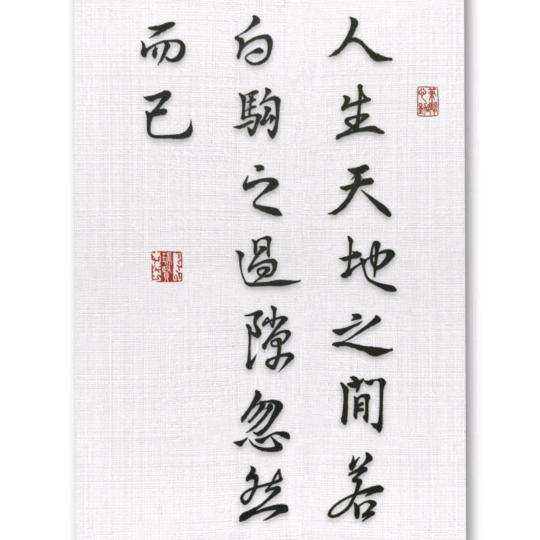 人生天地之間若
白駒之過隙忽然
而已